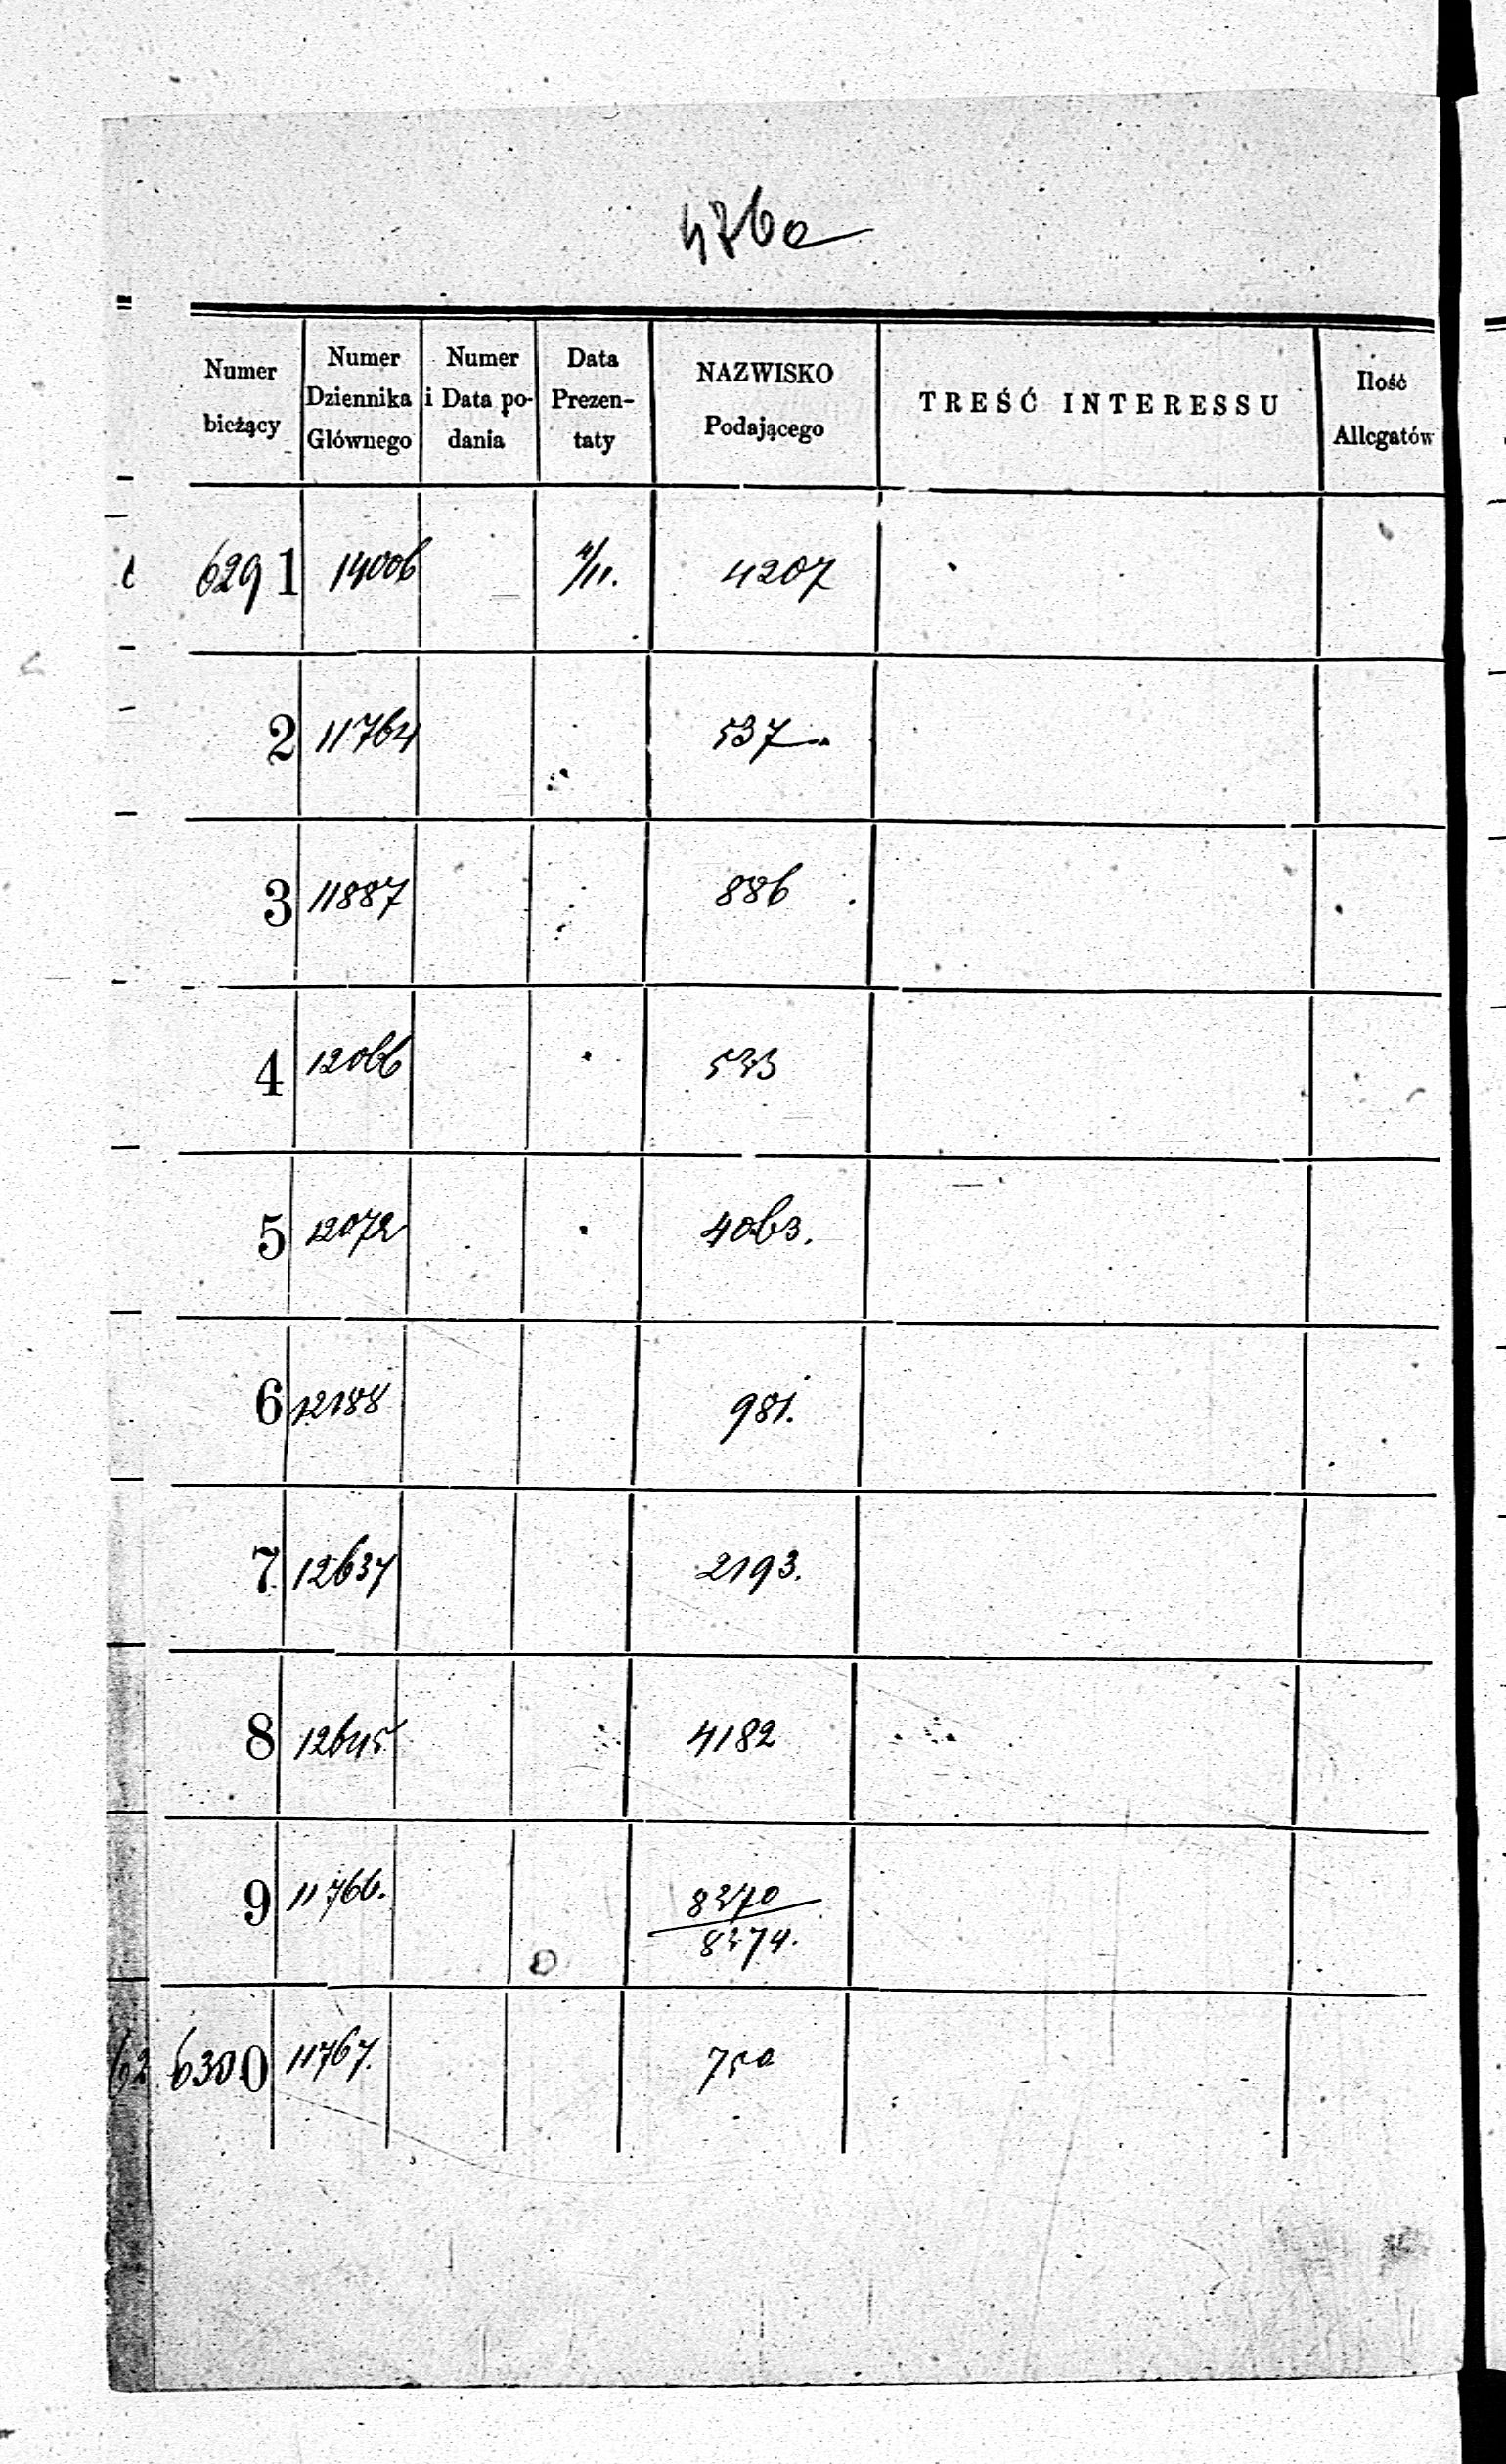 4760
Numer bieżący | Numer Dziennika Głównego | Numer i Data podania | Data Prezentaty | NAZWISKO Podającego | TREŚĆ INTERESSU | Ilość Allegatów
6291 | 14006 | | 4/11. | 4207
2 | 11764 | | | 537
3 | 11887 | | | 886
4 | 12066 | | | 533
5 | 12072 | | | 4063.
6 | 12188 | | | 981.
7 | 12637 | | | 2193.
8 | 12645 | | | 4182
9 | 11766. | | | 8270
8274.
6300 | 11767. | | | 750